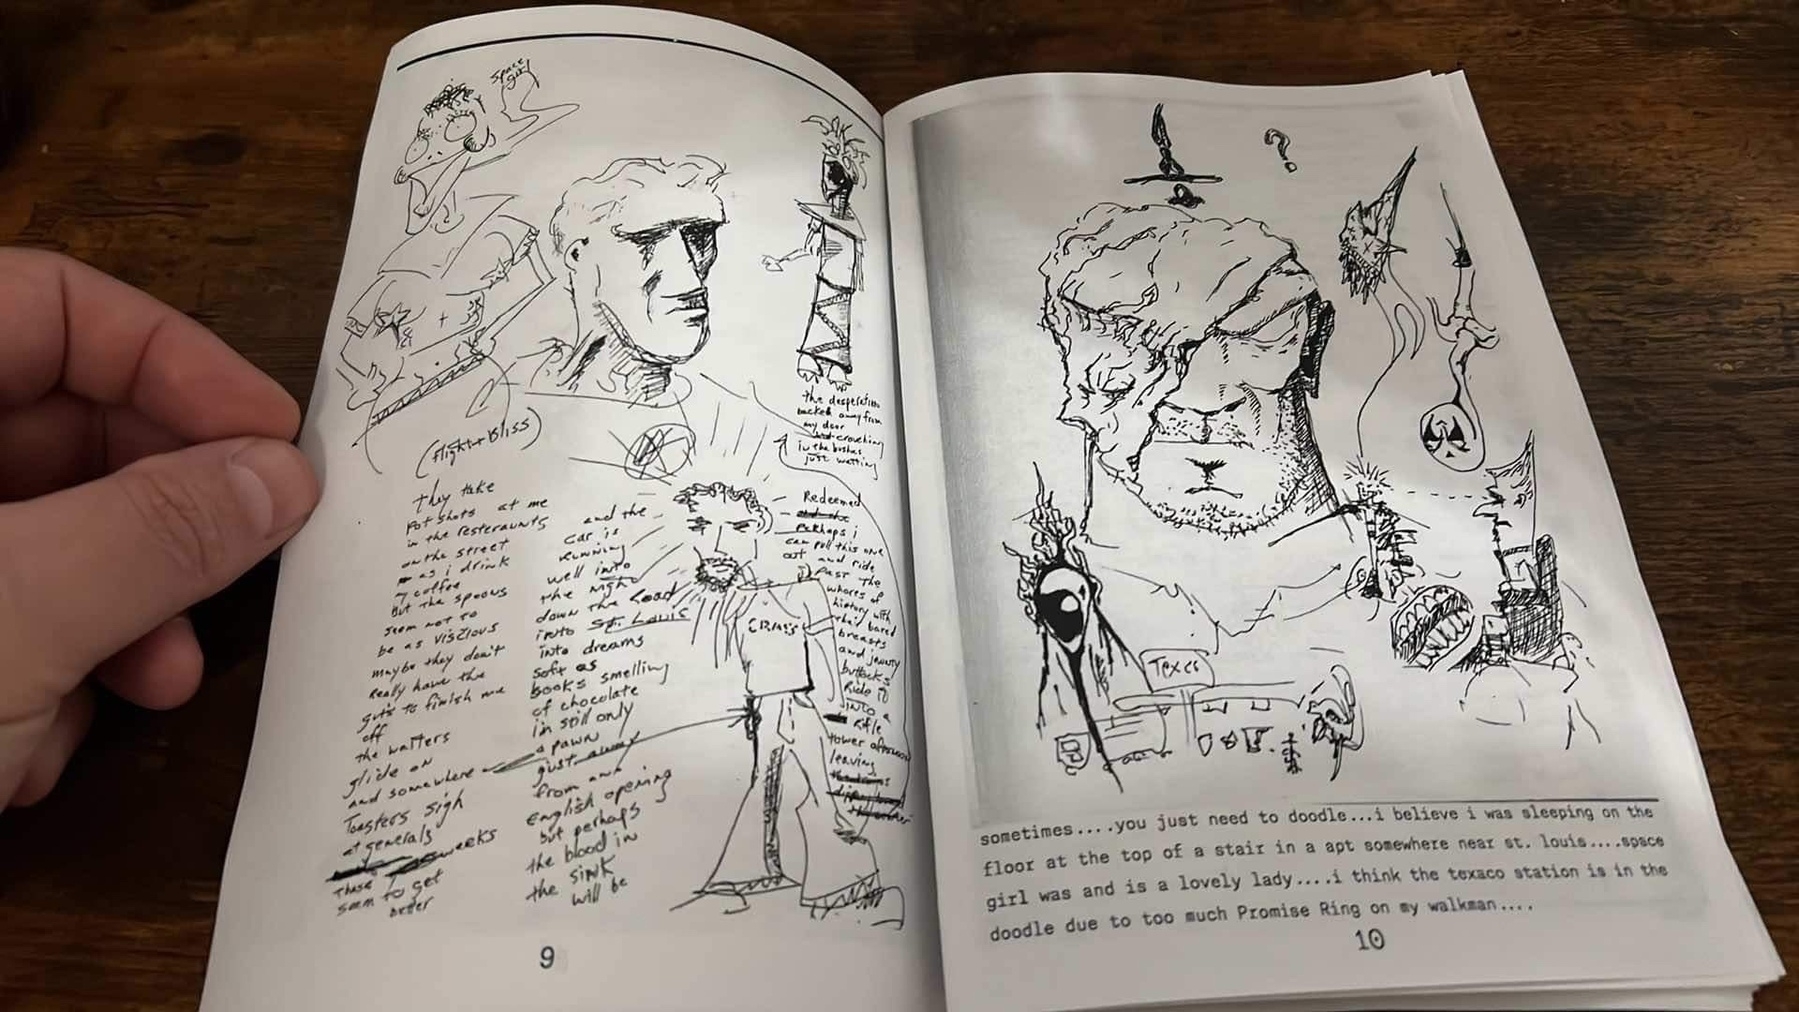 space
girl
(flight + Bliss)
the desperation
backed away from
my door
crouching
in the bushes
just waiting
They take
pot shots at me
in the resteraunts
on the street
as i drink
my coffee
But the spoons
seem not so
be as viscious
maybe they don't
really have the
guts to finish me
off
the waiters
glide on
and somewhere
Toasters sigh
at generals
These weeks
seem to get
better
and the
car is
running
well into
the night
down the road
into St. Louis
into dreams
soft as
books smelling
of chocolate
in still only
a pawn
just away
from an
English opening
but perhaps
the blood in
the sink
will be
Redeemed
and the
perhaps i
can pull this one
out and ride
past the
whores of
history with
their bared
breasts
and
buttocks
Ride it
into a
Rifle
tower afternoon
leaving
CRASS
?
Texco
sometimes....you just need to doodle...i believe i was sleeping on the
floor at the top of a stair in a apt somewhere near st. louis....space
girl was and is a lovely lady....i think the texaco station is in the
doodle due to too much Promise Ring on my walkman....
9
10